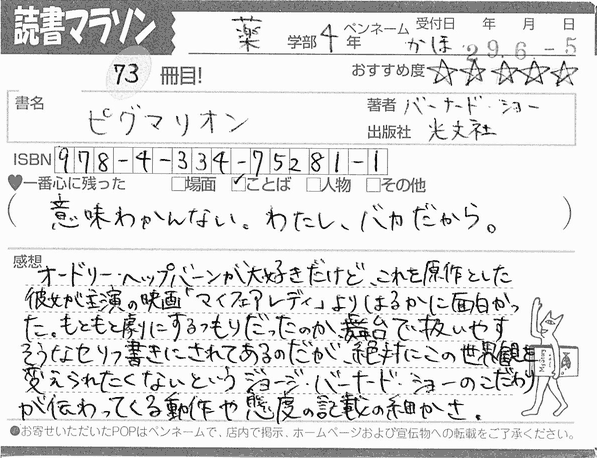 読書マラソン
薬 学部 4 年 ペンネーム かほ 受付日 年 月 日 29.6.-5
73 冊目! おすすめ度 ☆☆☆☆☆
書名 ピグマリオン
著者 バーナード・ショー
出版社 光文社
ISBN 978-4-334-75281-1
♥一番心に残った □場面 ☑ことば □人物 □その他
(意味わかんない。わたし、バカだから。)
感想
オードリー・ヘップバーンが大好きだけど、これを原作とした
彼女が主演の映画「マイフェアレディ」よりはるかに面白かっ
た。もともと劇にするつもりだったのか、舞台で扱いやす
そうなセリフ書きにされてあるのだが、絶対にこの世界観を
変えられたくないというジョージ・バーナード・ショーのこだわり
が伝わってくる動作や態度の記載の細かさ。
●お寄せいただいたPOPはペンネームで、店内で掲示、ホームページおよび宣伝物への転載をご了承ください。